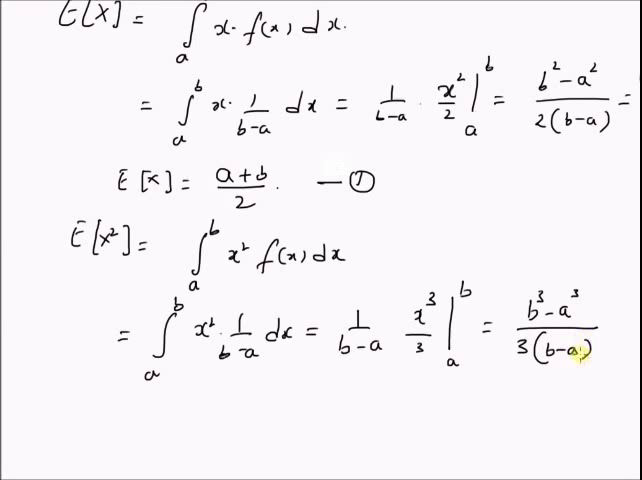 E[X] = ∫ₐ x. f(x) dx.
= ∫ₐᵇ x. 1/(b-a) dx = 1/(b-a) . x²/2 |ₐᵇ = (b²-a²)/(2(b-a)) =
E[X] = (a+b)/2. — ①
E[X²] = ∫ₐᵇ x² f(x) dx
= ∫ₐᵇ x². 1/(b-a) dx = 1/(b-a) x³/3 |ₐᵇ = (b³-a³)/(3(b-a))